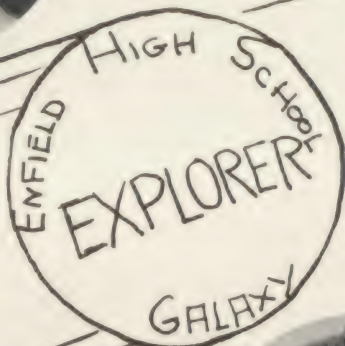 ENFIELD HIGH SCHOOL
EXPLORER
GALAXY